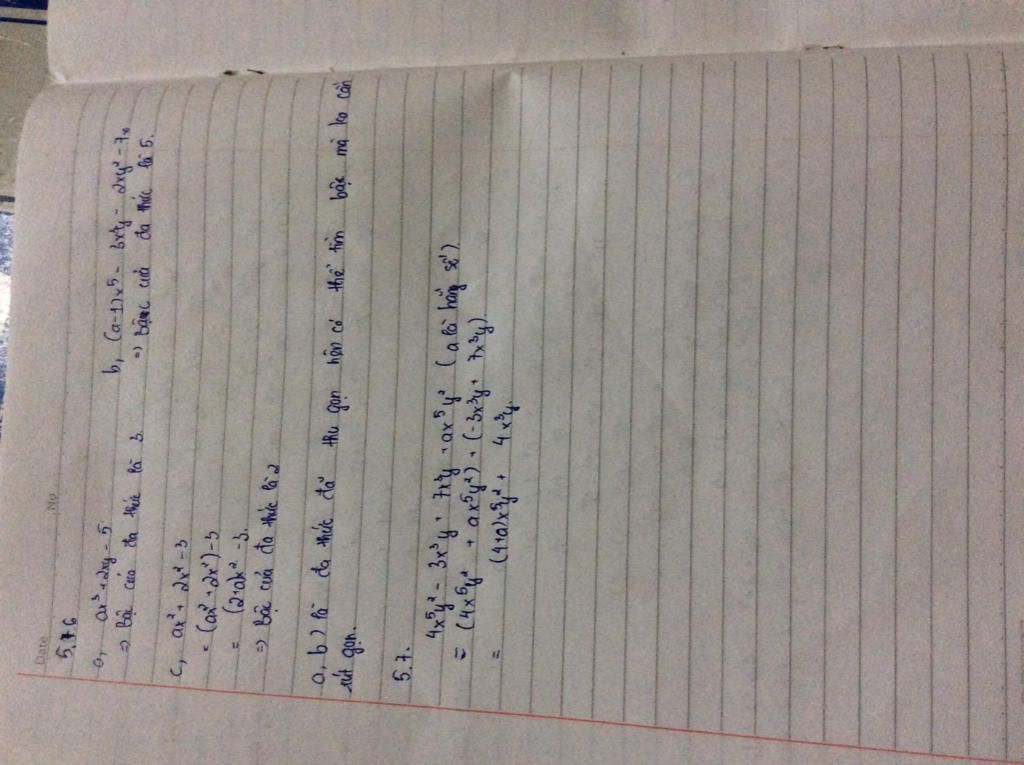 Date No
5.76
a, ax³ + 2xy - 5
=> Bậc của đa thức là 3.
b, (a-1)x⁵ - 3x²y - 2xy² - 7x
=> Bậc của đa thức là 5.
c, ax² + 2x² - 3
= (ax² + 2x²) - 3
= (2+a)x² - 3.
=> Bậc của đa thức là 2
a, b) là đa thức đã thu gọn nên có thể tìm bậc mà ko cần
rút gọn.
5.7.
4x⁵y² - 3x³y + 7x³y + ax⁵y² (a là hằng số)
= (4x⁵y² + ax⁵y²) + (-3x³y + 7x³y)
= (4+a)x⁵y² + 4x³y.